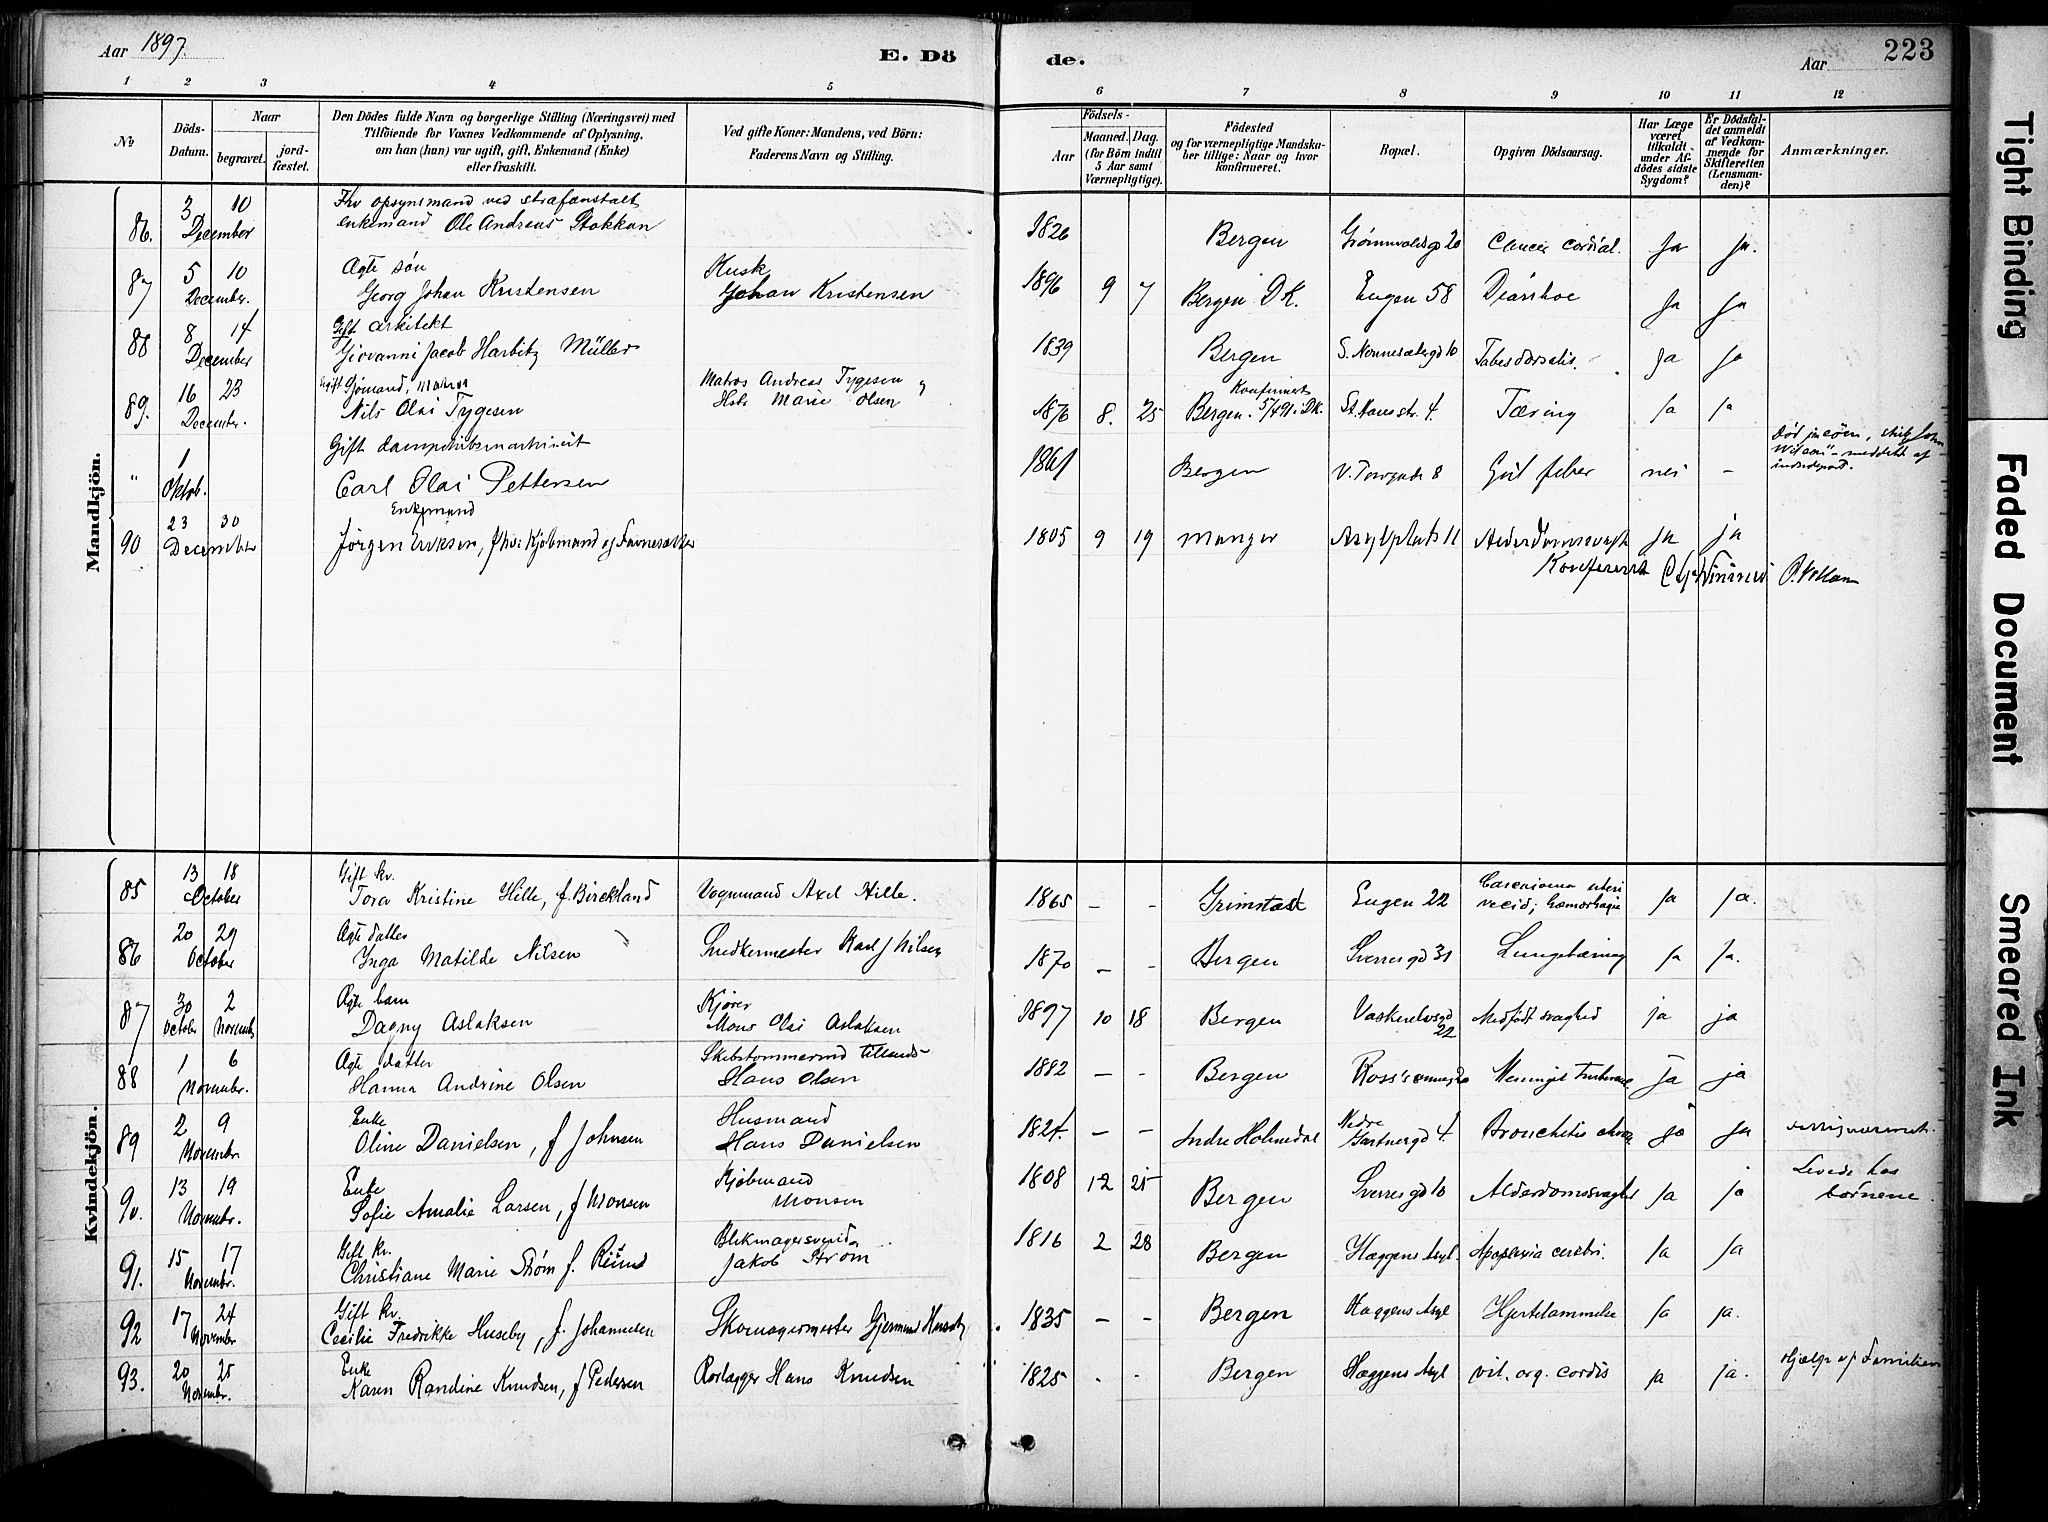 Aar 1897.
E. Dö
de.
Aar
223
1 2 3 4 5 6 7 8 9 10 11 12
No
Döds-Datum.
Naar
begravet.
jord-fæstet.
Den Dödes fulde Navn og borgerlige Stilling (Næringsvei) med
Tilföiende for Voxnes Vedkommende af Oplysning,
om han (hun) var ugift, gift, Enkemand (Enke)
eller fraskilt.
Ved gifte Koner: Mandens, ved Börn:
Faderens Navn og Stilling.
Födsels-
Aar
Maaned. Dag.
(for Börn indtil
5 Aar samt
Værnepligtige).
Födested
og for værnepligtige Mandska-
ber tillige: Naar og hvor
konfirmeret.
Bopæl.
Opgiven Dödsaarsag.
Har Læge
været
tilkaldt
under Af-
dödes sidste
Sygdom?
Er Dödsfal-
det anmeldt
af Vedkom-
mende for
Skifteretten
(Lensman-
den)?
Anmærkninger.
Mandkjön.
86. 3 10 December
Fhv opsynsmand ved strafanstalt
enkemand Ole Andreas Stokkan
1826 Bergen 20 Cancer Ja Ja.
87 5 10 December.
Ægte søn
Georg Johan Kristensen
Kusk
Johan Kristensen
1896 9 7 Bergen DK. Engen 58 Diarrhoe Ja Ja
88 8 14 December
Gift arkitekt
Giovanni Jacob Harbitz Müller
1839 Bergen S. 10 Tabes dorsalis. Ja Ja
89. 16 23 December.
Gift Sjømand,
Nils Olai Tygesen
Matros Andreas Tygesen
Marie Olsen
1876 8. 25 Bergen. Konfirmert 5/4 91 i DK. St. Hansstr. 4. Tæring Ja Ja
" 1 Oktob.
Gift
Carl Olai Pettersen
1861 Bergen V. Torvgade 8 Gul feber nei -
90 23 30 December
Enkemand
Jørgen Eriksen, fhv. Kjøbmand og
1805 9 19 Manger Asylplads 11 Ja ja
Konfereret
Kvindekjön.
85 13 18 October
Gift kv.
Tora Kristine Hille, f. Birckland
Vognmand Axel Hille.
1865 - - Grimstad Engen 22 Carcinoma uteri
Ja Ja.
86 20 29 October
Ægte datter
Inga Matilde Nilsen
Snedkermester Karl J Nilsen
1870 - - Bergen Sverresgd 31 Lungetæring Ja Ja.
87 30 October 2 Novemb
Ægte barn
Dagny Aslaksen
Kjører
Mons Olai Aslaksen
1897 10 18 Bergen 22 Medfødt svaghed ja ja
88 1 6 Novembr.
Ægte datter
Hanna Andrine Olsen
Hans Olsen
1882 - - Bergen Ja ja
89 2 9 Novembr
Enke
Oline Danielsen, f Johnsen
Husmand
Hans Danielsen
1824. - - Indre Holmedal Nedre
Gartnergd 4. Bronchitis Ja Ja
90. 13 19 Novembr.
Enke
Sofie Amalie Larsen, f Monsen
Kjøbmand
Monsen
1808 12 25 Bergen Sverresgd 10 Alderdomssvaghed Ja ja Levede hos
børnene.
91. 15 17 Novembr.
Gift kv.
Christiane Marie Strøm f.
Blikmagersvend
Jakob Strøm
1816 2 28 Bergen Hæggens Asyl. Apoplexia cerebri. Ja Ja
92 17 24 November
Gift kv.
Cecilie Fredrikke Huseby, f. Johannesen
Skomagermester Gjermund Huseby
1835 - - Bergen Hæggens Asyl Hjertelammelse Ja ja.
93. 20 25 Novembr.
Enke
Karen Randine Knudsen, f Pedersen
Rorlægger Hans Knudsen
1825 - - Bergen Hæggens Asyl vit. org. cordis Ja ja. Hjælp af Familien
Tight Binding
Faded Document
Smeared Ink